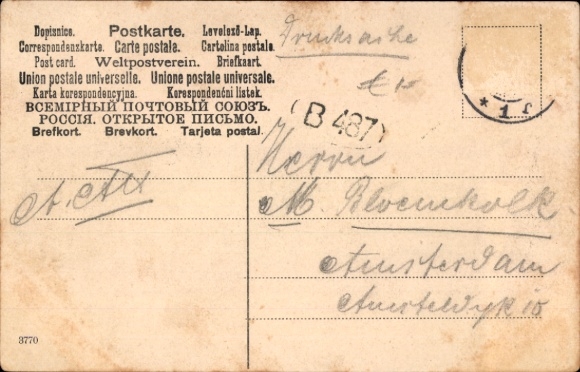 Dopisnice. Postkarte. Levelező-Lap.
Correspondenzkarte. Carte postale. Cartolina postale.
Post card. Weltpostverein. Briefkaart.
Union postale universelle. Unione postale universale.
Karta korespondencyjna. Korespondenčni listek.
ВСЕМІРНЫЙ ПОЧТОВЫЙ СОЮЗЪ.
РОССІЯ. ОТКРЫТОЕ ПИСЬМО.
Brefkort. Brevkort. Tarjeta postal.
Drucksache
* 1
(B 487)
Herrn
M. Bloemkolk
Amsterdam
Amsteldyk 10
3770